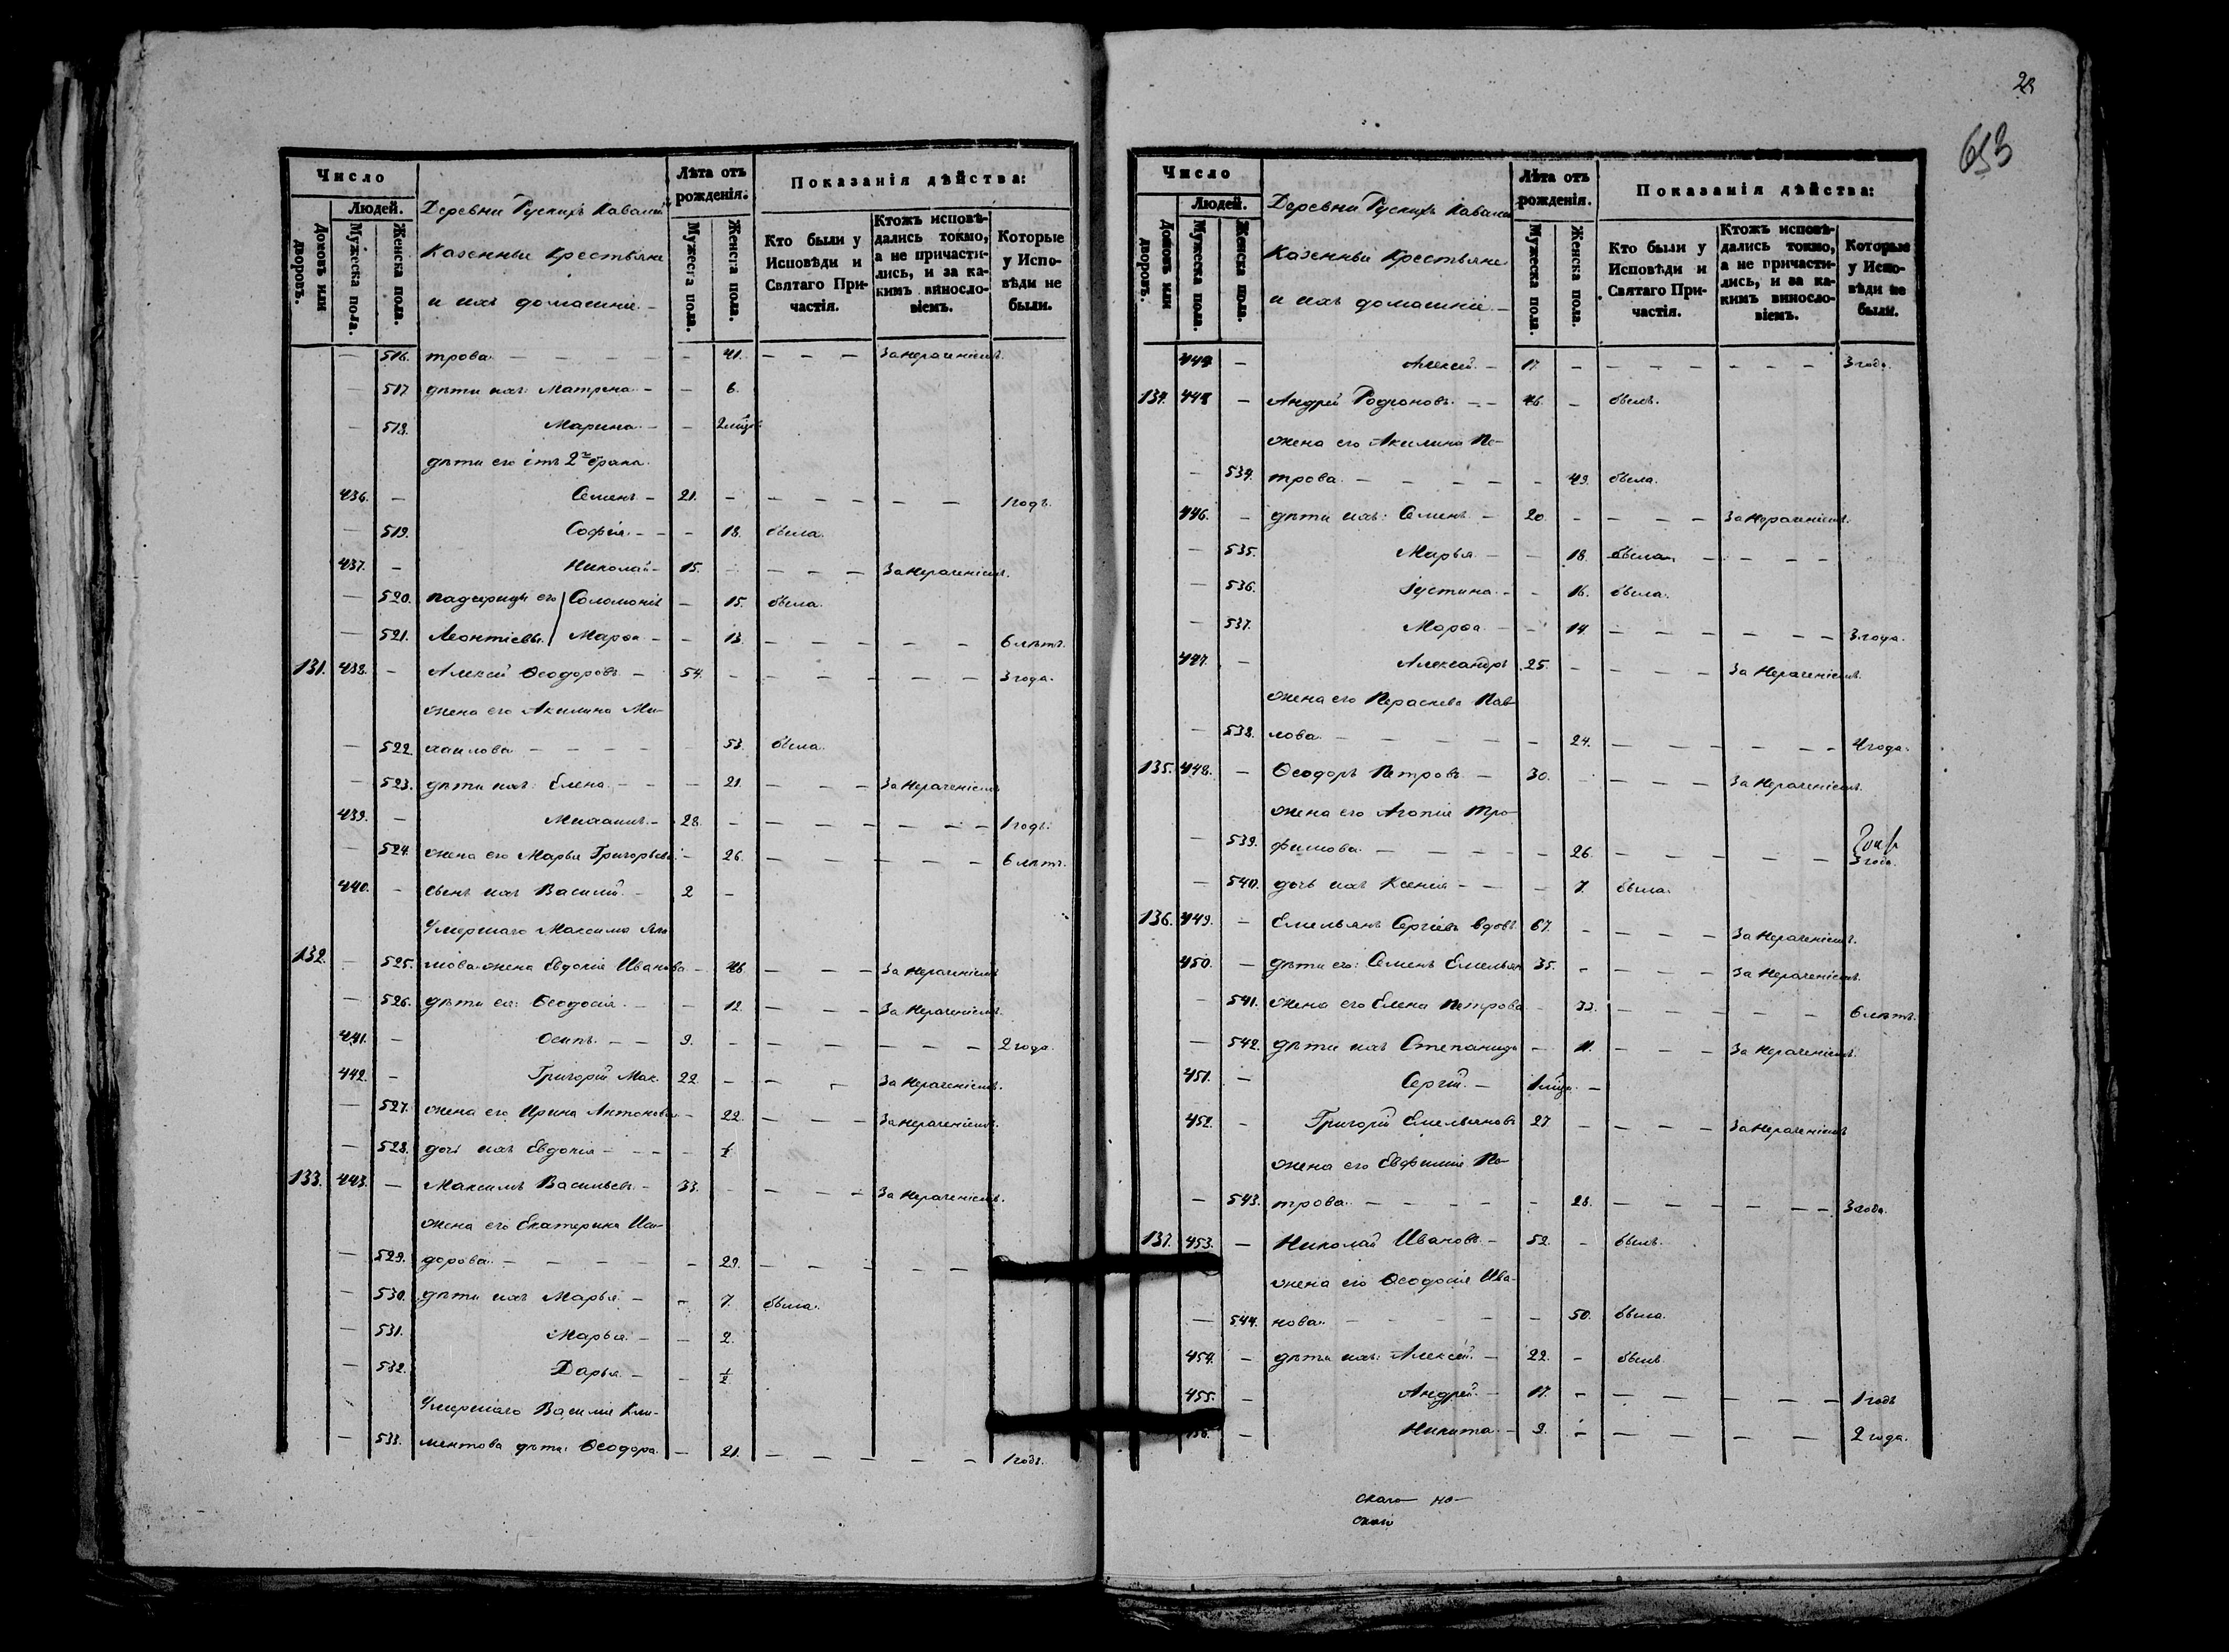 Число
Людей.
Домовъ или дворовъ.
Мужеска пола.
Женска пола.
Деревни Рускихъ
Казенныя Крестьяне
и ихъ домашніе. –
Лѣта отъ рожденія.
Мужеска пола.
Женска пола.
Показанія дѣйства:
Кто были у Исповѣди и Святаго Причастія.
Ктожъ исповѣдались токмо, а не причастились, и за какимъ винословіемъ.
Которые у Исповѣди не были.
– 516. трова. – – – – – 41. – – – За нераченіемъ.
– 517. дѣти ихъ: Матрена – – 6.
– 518. Марина – – 2 мѣс.
дѣти его отъ 2го брака.
436. – Семенъ – 21. – – – – – – 1 годъ.
– 519. Софія. – – – 18. была.
437. – Николай – 15. – – – – За нераченіемъ.
– 520. падчерицы его Соломонія – 15. была.
– 521. Леонтіевы. Марѳа – – 13. – – – – – 6 лѣтъ.
131. 438. – Алексѣй Ѳеодоровъ – 54. – – – – – – 3 года.
жена его Акилина Ми-
– 522. хаилова – – – – – 53. была.
– 523. дѣти ихъ: Елена – – – 21. – – – За нераченіемъ
439. – Михаилъ. – 28. – – – – – – 1 годъ.
– 524. жена его Марья Григорьева – 26. – – – – – 6 лѣтъ.
440. – сынъ ихъ Василій – 2 –
Умершаго Максима
132. – 525. жена Евдокія Иванова – 46. – – – За нераченіемъ
– 526. дѣти ея: Ѳеодосія. – – 12. – – – За нераченіемъ.
441. – Осипъ. – – 9. – – – – – – – 2 года.
442. – Григорій Мак. 22. – – – За нераченіемъ.
– 527. жена его Ирина Антонова – 22. – – – За нераченіемъ.
– 528. дочь ихъ Евдокія – – – – ½
133. 443. – Максимъ Васильевъ. – 33. – – – – За нераченіемъ.
жена его Екатерина Иси-
– 529. дорова. – – – – – 29. – – – – –
– 530. дѣти ихъ Марья – – 7. была.
– 531. Марья. – – 2.
– 532. Дарья. – – ½
Умершаго Василія Кли-
– 533. ментова дѣти: Ѳеодора. – 21. – – – – – 1 годъ.
29
653
Число
Людей.
Домовъ или дворовъ.
Мужеска пола.
Женска пола.
Деревни Рускихъ
Казенныя Крестьяне
и ихъ домашніе. –
Лѣта отъ рожденія.
Мужеска пола.
Женска пола.
Показанія дѣйства:
Кто были у Исповѣди и Святаго Причастія.
Ктожъ исповѣдались токмо, а не причастились, и за какимъ винословіемъ.
Которые у Исповѣди не были.
444 – Алексѣй. – 17. – – – – – – – 3 года.
134. 445 – Андрей Родіоновъ. – – 46. – былъ.
жена его Акилина Пе-
– 534. трова. – – – – – 49. была.
446. – дѣти ихъ: Семенъ. – 20. – – – – За нераченіемъ.
– 535. Марья – – 18. была. – – – –
– 536. Іустина. – – 16. была.
– 537. Марѳа – – 14. – – – – – – 3 года.
447. – Александръ 25. – – – – За нераченіемъ.
жена его Параскева Пав-
– 538. лова. – – – – – 24. – – – – – – 4 года.
135. 448. – Ѳеодоръ Петровъ – 30. – – – За нераченіемъ.
жена его Агапія Тро-
– 539. фимова. – – – – – 26. – – – – – – 3 года.
– 540. дочь ихъ Ксенія – – – 7. была.
136. 449. – Емельянъ Сергіевъ вдовъ 67. – – – – За нераченіемъ.
450. – дѣти его: Семенъ Емельян 35. – – – – За нераченіемъ.
– 541. жена его Елена Петрова – 33. – – – – – 6 лѣтъ.
– 542. дѣти ихъ Степанида – 11. – – – За нераченіемъ.
451. – Сергій. – 1 мѣс. –
452. – Григорій Емельяновъ 27. – – – – За нераченіемъ
жена его Евфимія Пе-
– 543. трова. – – – – – 28. – – – – – – 3 года.
137. 453. – Николай Ивановъ – 52. – былъ.
жена его Ѳеодосія Ива-
– 544. нова. – – – – – 50. была.
454. – дѣти ихъ: Алексѣй. – 22. – былъ.
455. – Андрей. – 17. – – – – – – 1 годъ
456. – Никита. – 9. – – – – – 2 года.